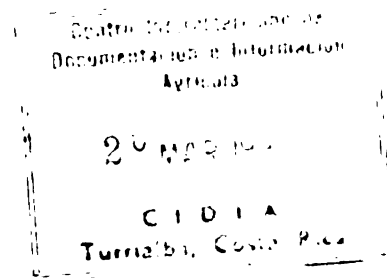 Centro Interamericano de
Documentación e Información
Agrícola
2 MAR 19
C I D I A
Turrialba, Costa Rica